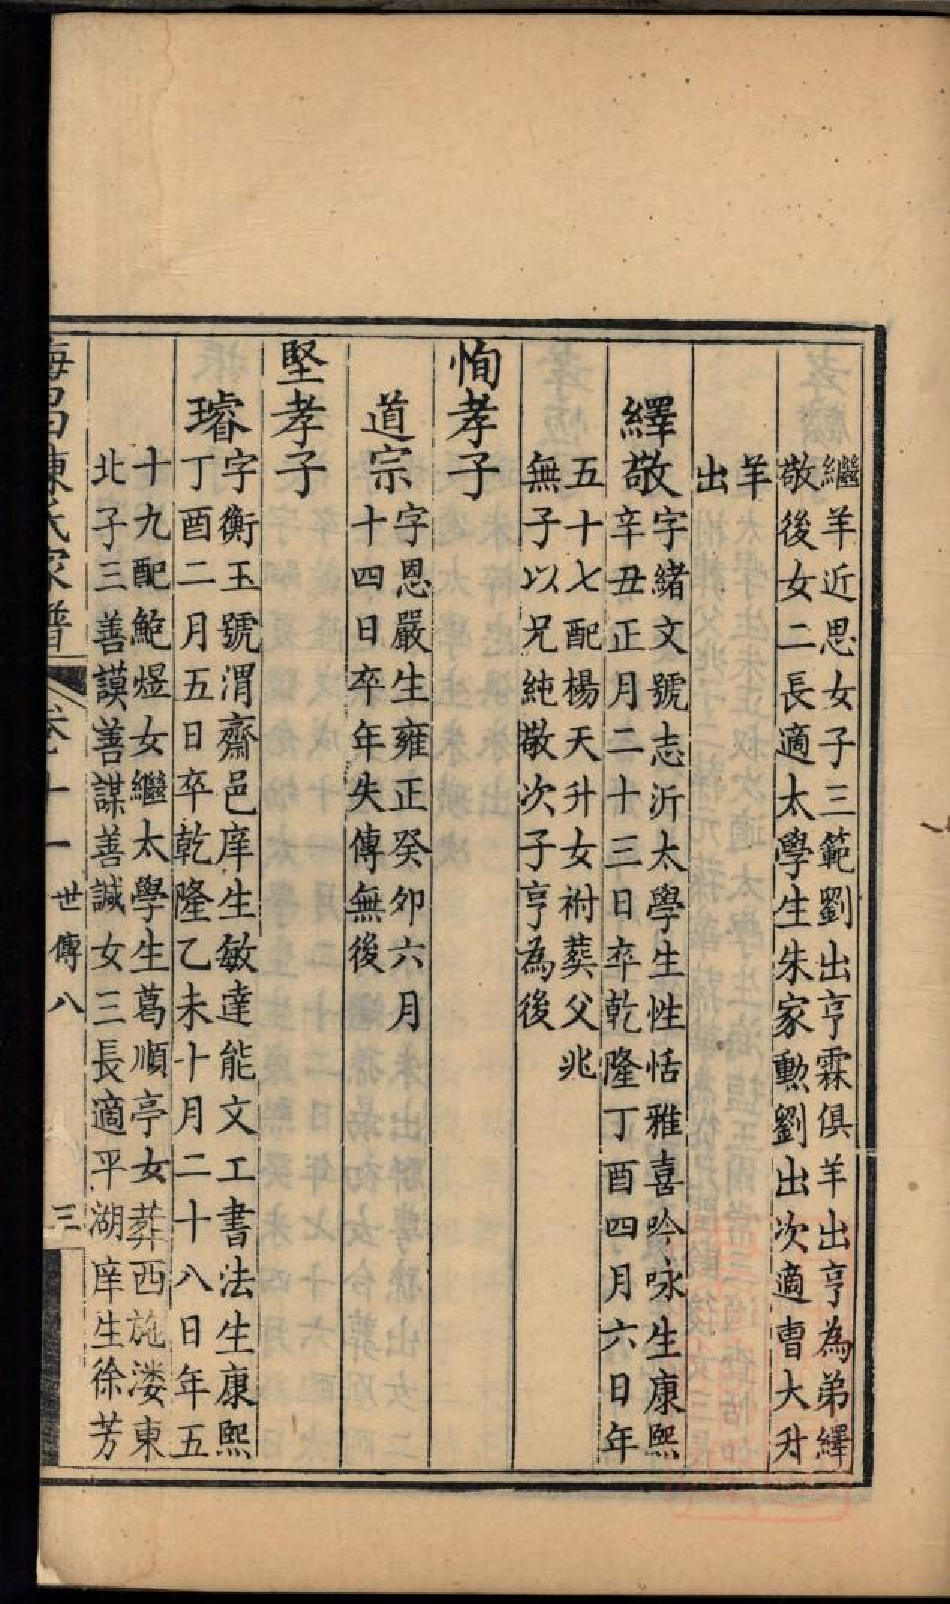 繼羊近思女子三範劉出亨霖俱羊出亨為弟繹
敬後女二長適太學生朱家勲劉出次適曹大升
羊
出
繹敬
字緒文號志沂太學生性恬雅喜吟咏生康熙
辛丑正月二十三日卒乾隆丁酉四月六日年
五十七配楊天升女祔葬父兆
無子以兄純敬次子亨為後
恂孝子
道宗
字恩嚴生雍正癸卯六月
十四日卒年失傳無後
堅孝子
璿
字衡玉號渭齋邑庠生敏達能文工書法生康熙
丁酉二月五日卒乾隆乙未十月二十八日年五
十九配鮑煜女繼太學生葛順亭女葬西施漊東
北子三善謨善謀善諴女三長適平湖庠生徐芳
海昌陳氏家譜
卷十一
世傳八
三